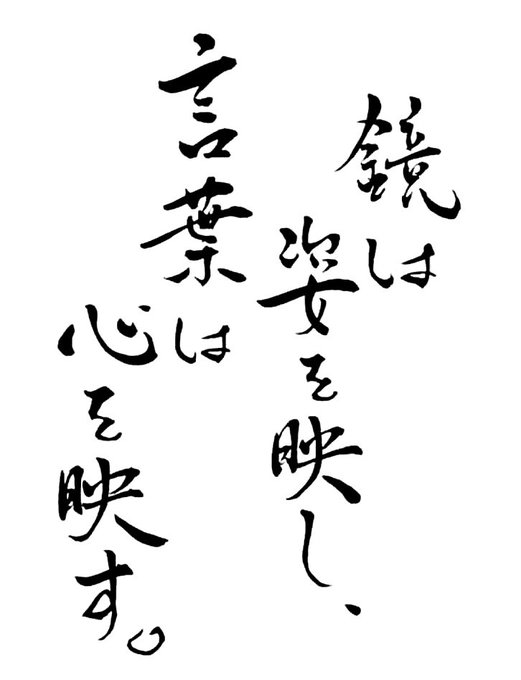 鏡は
姿を映し、
言葉は
心を映す。